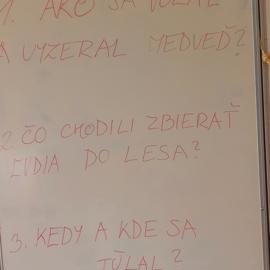 1. AKO SA VOLAL
A VYZERAL MEDVEĎ?
2 ČO CHODILI ZBIERAŤ
ĽUDIA DO LESA?
3. KEDY A KDE SA
TÚLAL?